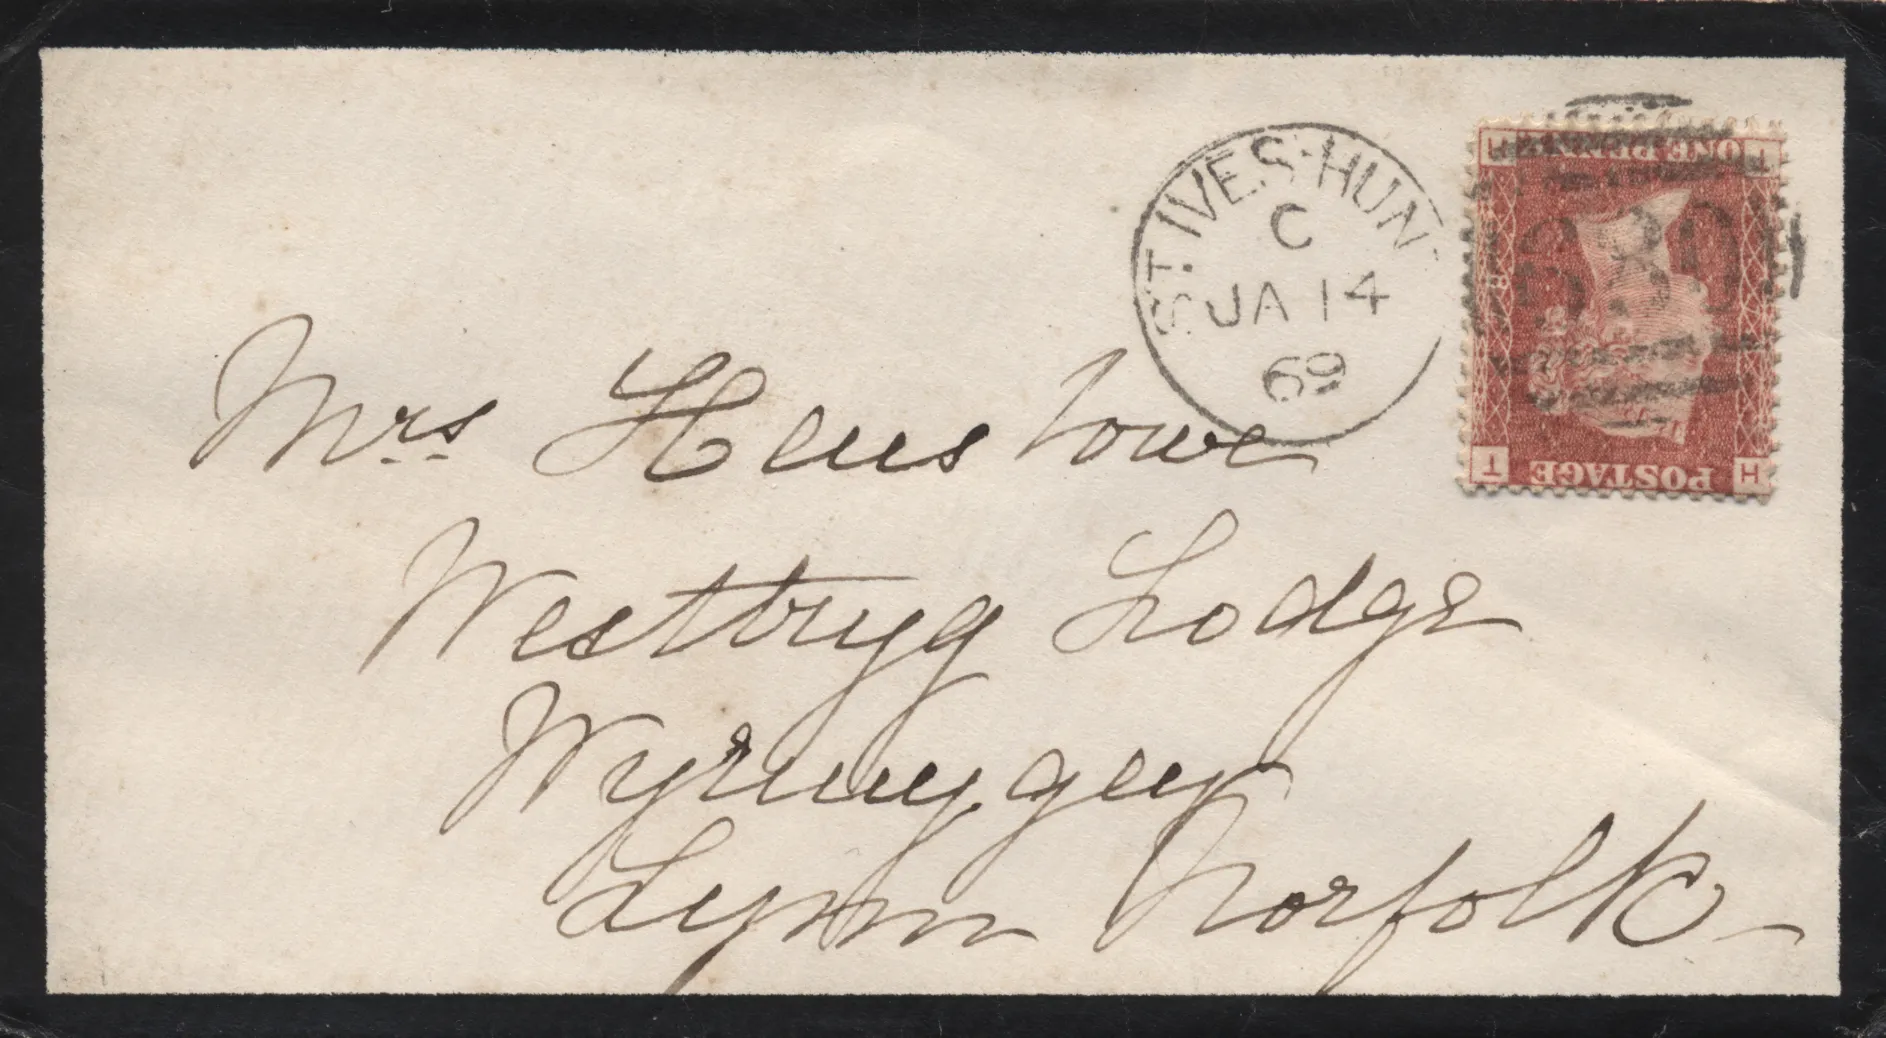 ST. IVES·HUN
C
JA 14
69
ONE PENNY
POSTAGE
H
T
Mrs
Westbryg Lodge
Lynn Norfolk